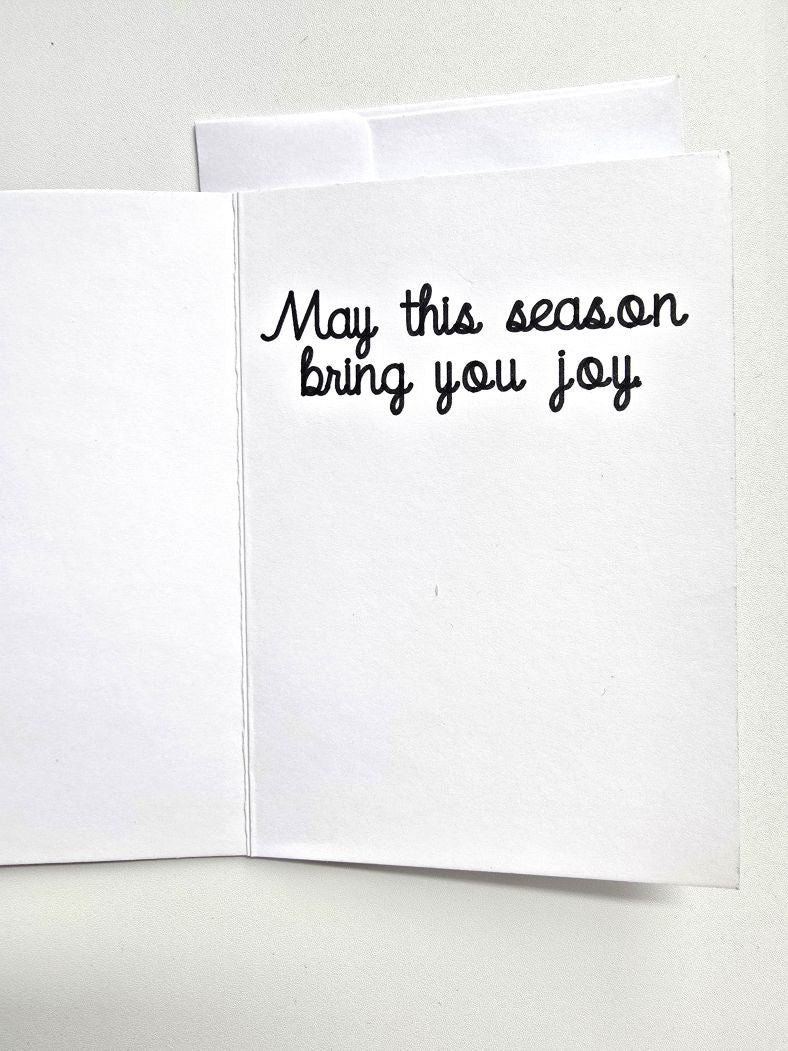 May this season
bring you joy.